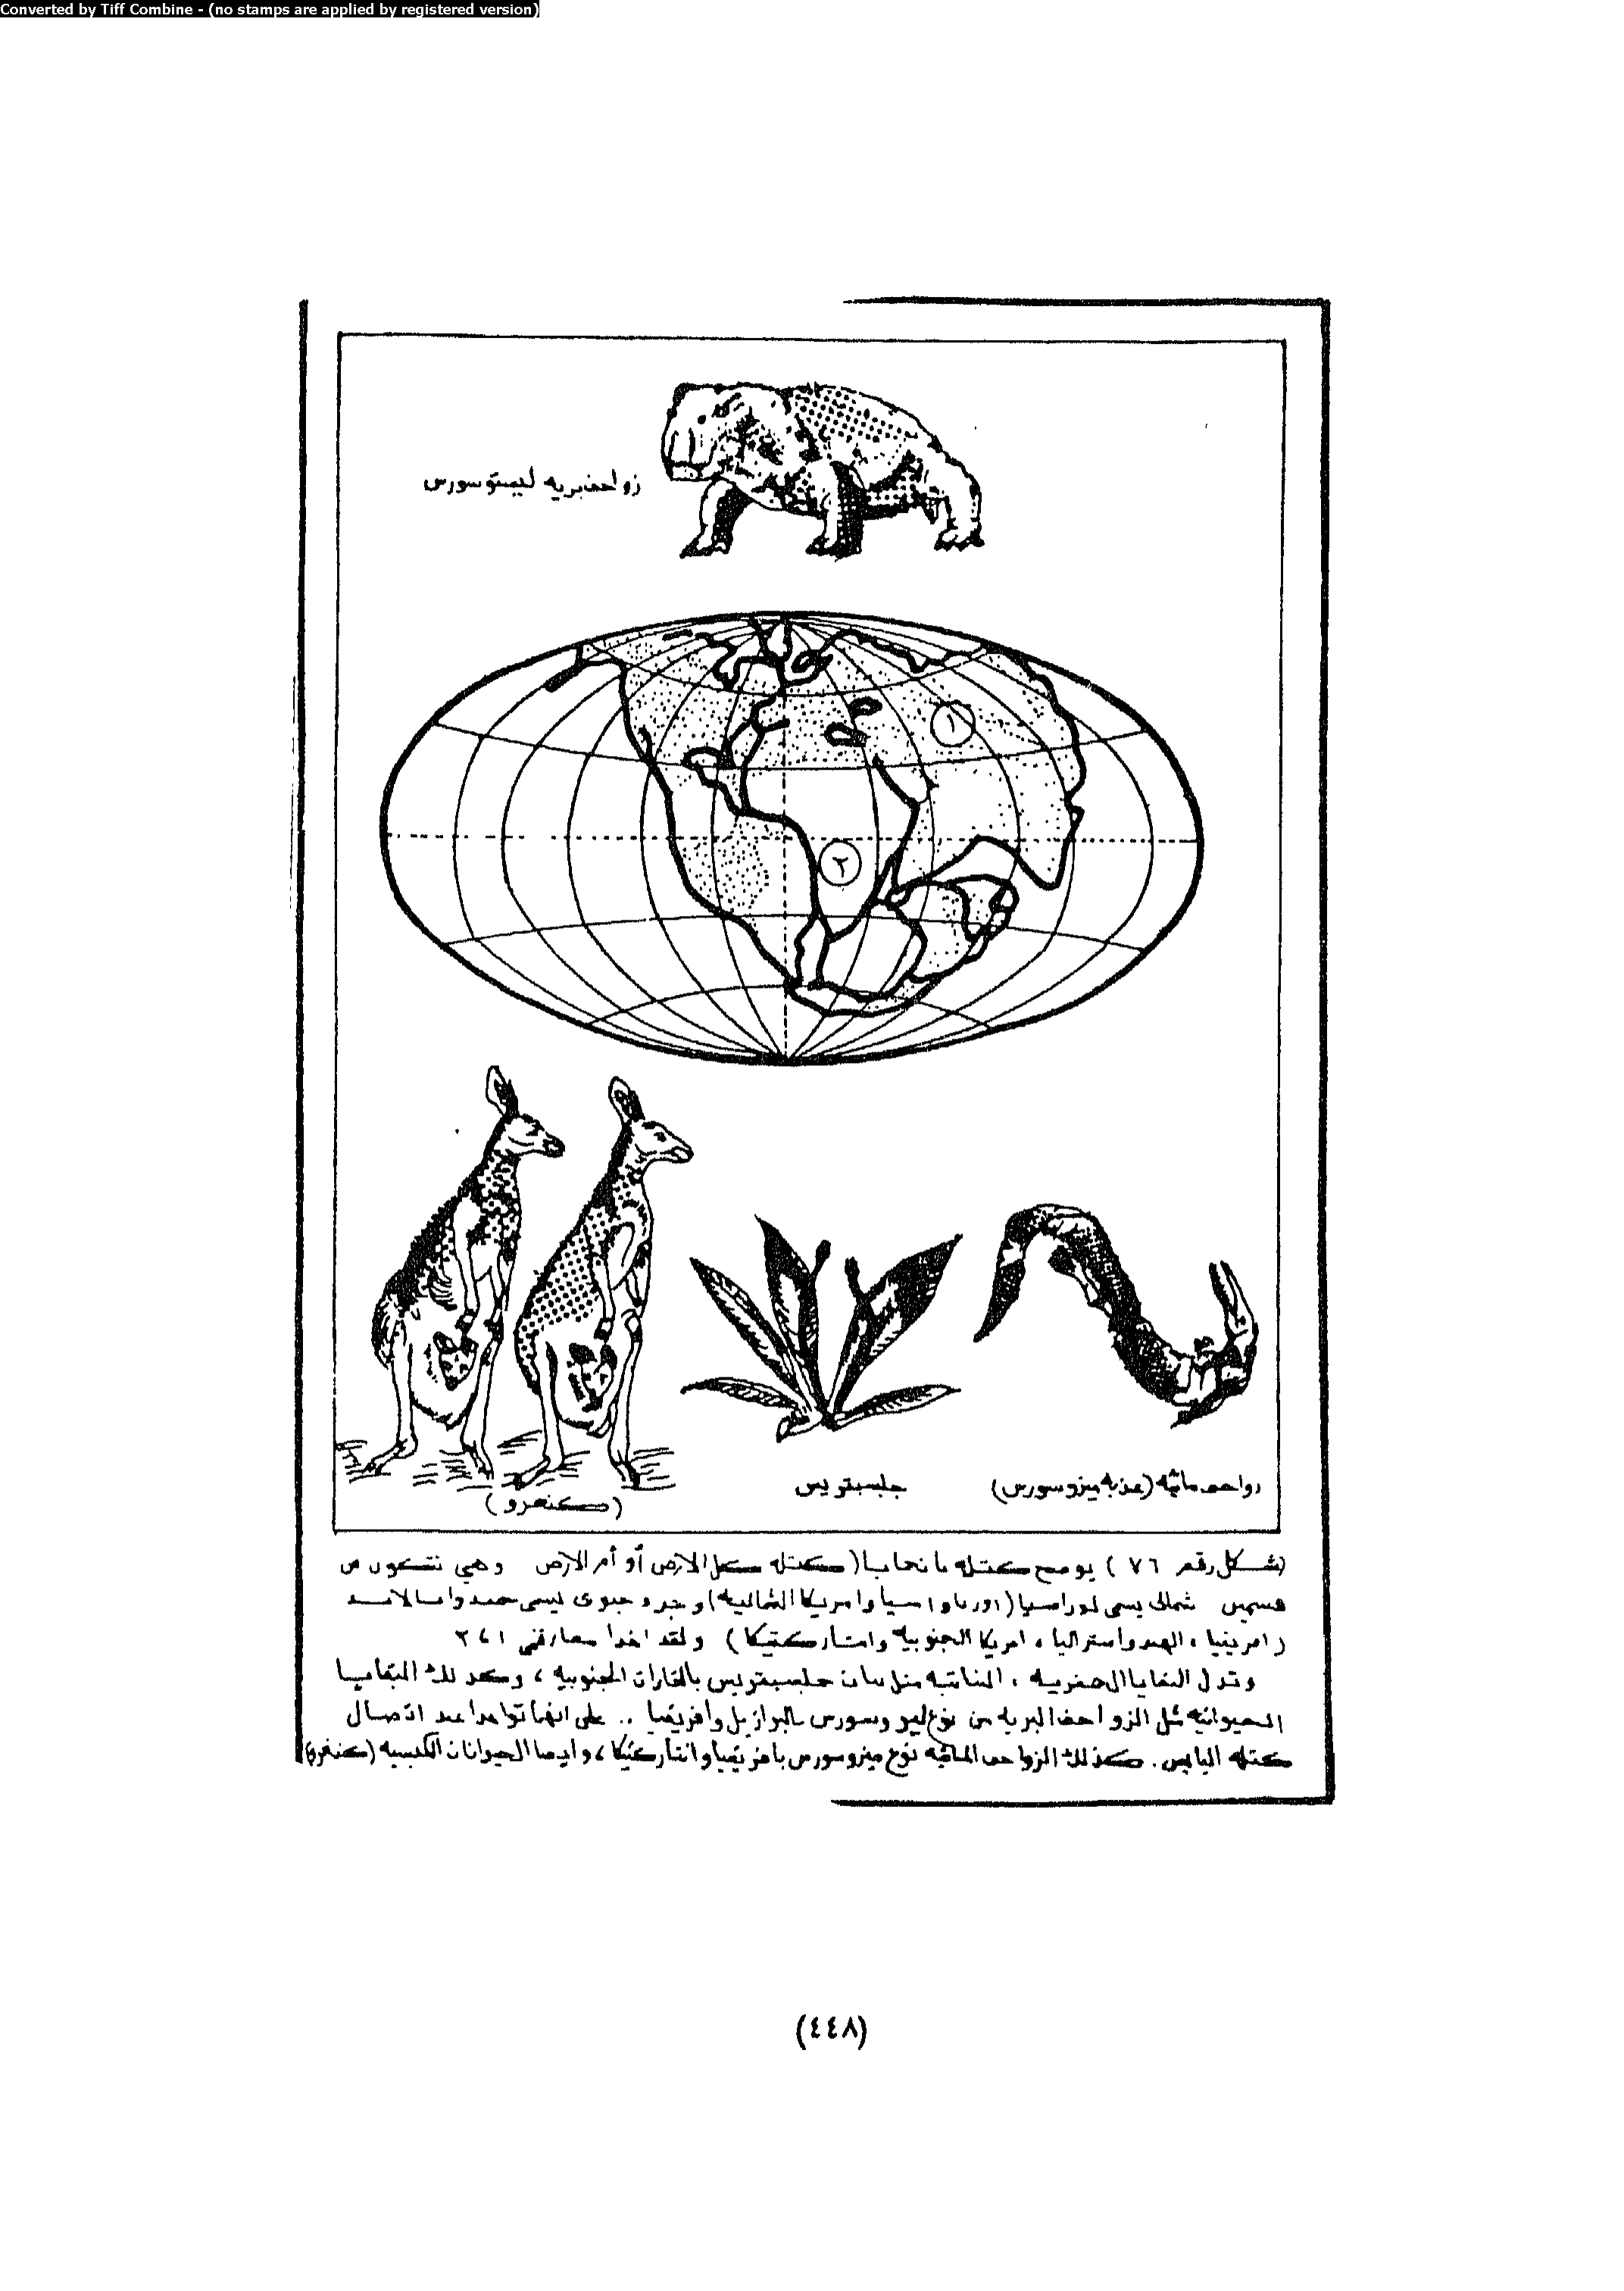 Converted by Tiff Combine - (no stamps are applied by registered version)
زواحف بريه ليستوسورس
١
٢
زواحف مائيه (عذبه ميزوسورس)
جلسبتريس
(كنغرو)
(شكل رقم ٧٦) يوضح كتله بانجايا (كتله كل الارض أو أم الارض وهي تتكون من
قسمين شمالى يسمى لوراسيا (اوربا واسيا وامريكا الشماليه) وجزء جنوبى يسمى جندوانالاند
(افريقيا، الهند واستراليا، امريكا الجنوبيه وانتاركتيكا) ولقد اخذا رقمى ١، ٢
وتدل البقايا الحفريه، النباتيه مثل نبات جلسبتريس بالقارات الجنوبيه، وكذلك البقايا
الحيوانيه مثل الزواحف البريه من نوع بالبرازيل وأفريقيا .. على انها تواجدا عند اتصال
كتله اليابس. كذلك الزواحف المائيه نوع ميزوسورس بافريقيا وانتاركتيكا، وايضا الحيوانات الكيسيه (كنغرو)
(٤٤٨)